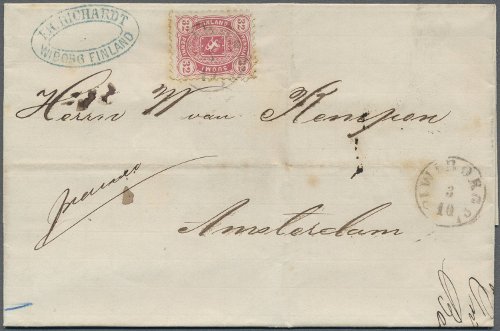 I.H. RICHARDT
WIBORG FINLAND
32 FINLAND 32
SUOMI
32 32
Herrn W van Kempen
franco
Amsterdam
WIBORG
3
10